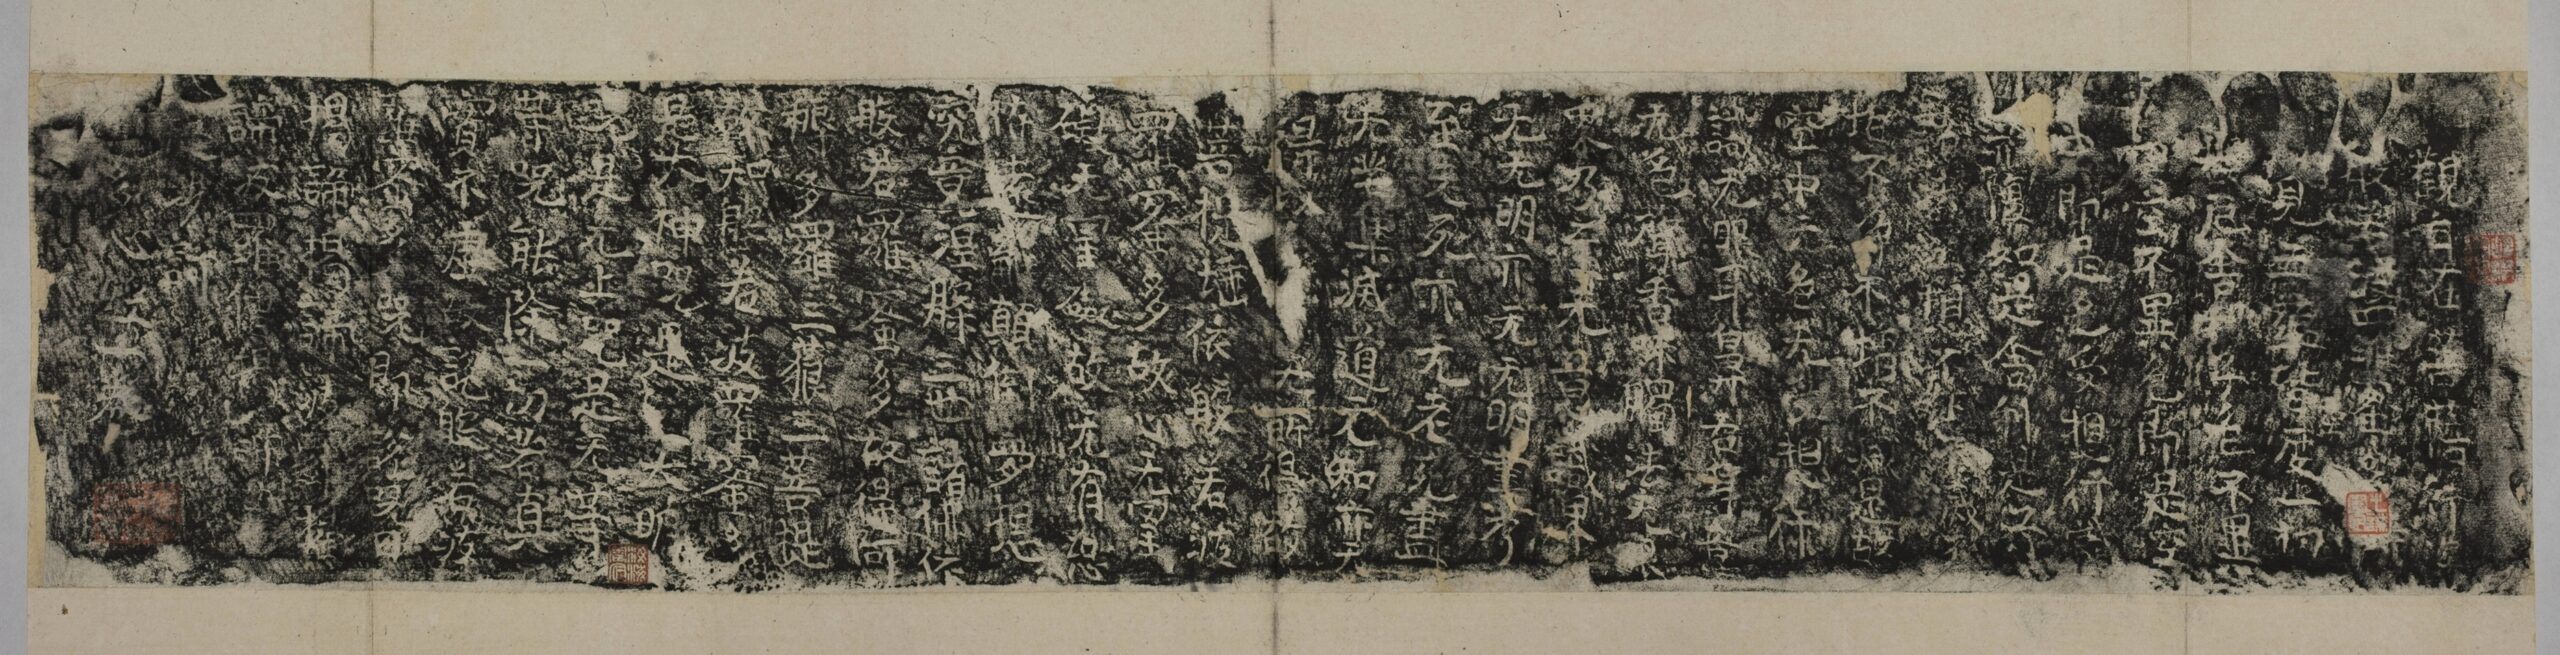 觀自在菩薩行
般若波羅蜜
見五蘊皆度一切
厄舍利子色不異
空不異色色即是空
即是色受想行識
亦復如是舍利子
相不滅
垢不不增不減是故
空中无色无受想行
識无眼耳鼻舌身意
无色聲香味觸法无眼
界乃至无意識界
无无明亦无无明盡乃
至无死亦无老死盡
无苦集滅道无知亦无
得以无所得故
菩提埵依般若波
羅蜜多故心无罣
礙无罣礙故无有恐
怖遠離顛倒夢想
究竟涅槃三世諸佛依
般若羅蜜多故得阿
耨多羅三藐三菩提
故知般若波羅蜜多
是大神呪是大明
呪是无上呪是无等
等呪能除一切苦真
實不虛故說般若波
羅蜜多呪即說呪曰
揭諦揭諦
諦波羅僧
沙訶
多心經一卷